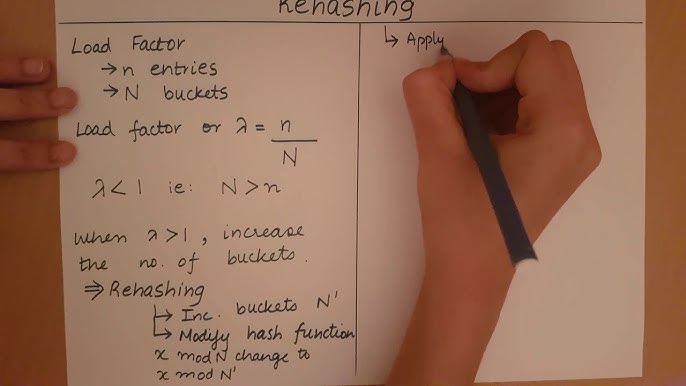 Rehashing
Load Factor
→ n entries
→ N buckets
Load factor or λ = n
N
λ < 1 ie: N > n
When λ > 1, increase
the no. of buckets.
⇒ Rehashing
↳ Inc. buckets N'
↳ Modify hash function
x mod N change to
x mod N'
↳ Apply